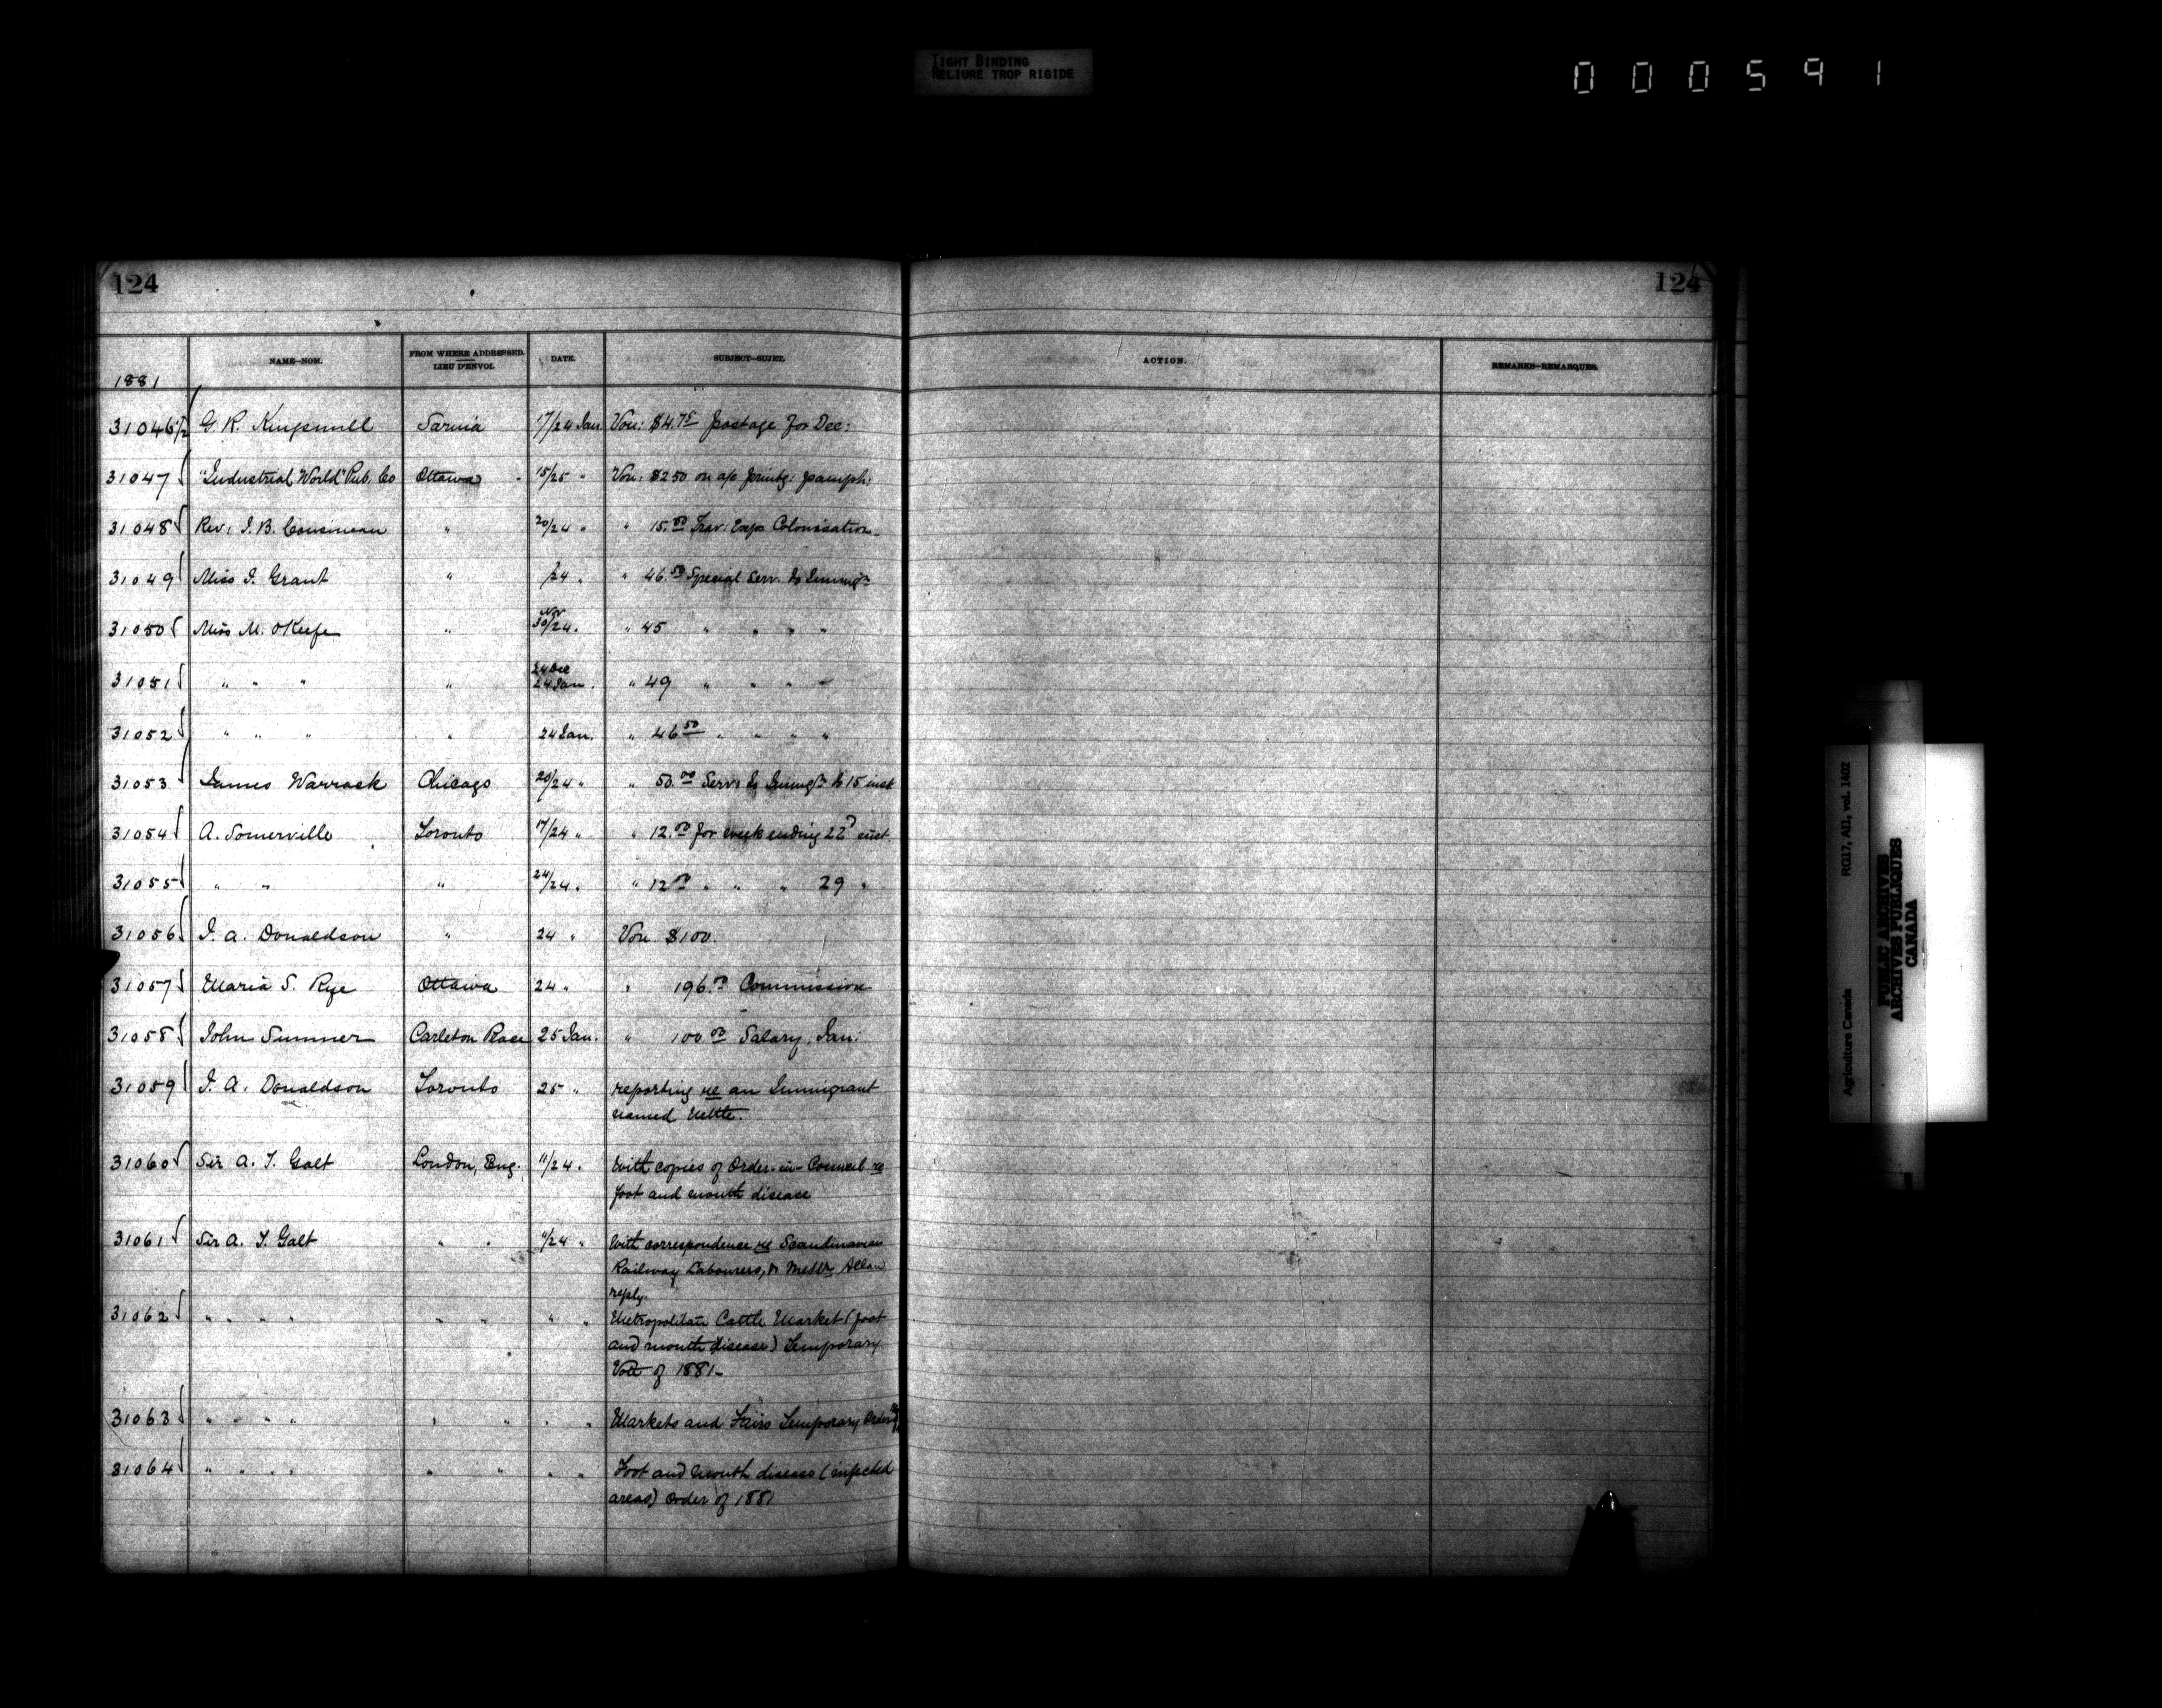 TIGHT BINDING
RELIURE TROP RIGIDE
000591
124
124
NAME—NOM. FROM WHERE ADDRESSED. LIEU D'ENVOI. DATE. SUBJECT—SUJET. ACTION. REMARKS—REMARQUES.
1881
31046½ G. R. Kingsmill Sarnia 17/24 Jan. Vou: $4.75 postage for Dec:
31047 "Industrial World" Pub. Co Ottawa 15/25 " Vou: $250 on a/c printg: pamph:
31048 Rev: J. B. Cousineau " 20/24 " " 15.00 Trav: Exps Colonisation
31049 Miss J. Grant " /24 " " 46.50 Special Serv. to Immigtn
31050 Miss M. OKeefe " Nov 30/24 " " 45 " " " "
31051 " " " " 24 Dec 24 Jan. " 49 " " " "
31052 " " " " 24 Jan. " 46 50 " " " "
31053 James Warrack Chicago 20/24 " " 50.00 Servs to Immigtn to 15 inst
31054 A. Somerville Toronto 17/24 " " 12.00 for week ending 22d inst.
31055 " " " 24/24 " " 12 00 " " " 29 "
31056 J. A. Donaldson " 24 " Vou $100.
31057 Maria S. Rye Ottawa 24 " " 196.00 Commission
31058 John Sumner Carleton Place 25 Jan. " 100.00 Salary, Jan:
31059 J. A. Donaldson Toronto 25 " reporting re an Immigrant
named Nettle.
31060 Sir A. T. Galt London, Eng. 11/24 " With copies of Order-in-Council re
foot and mouth disease
31061 Sir A. T. Galt " " /24 " With correspondence re Scandinavian
Railway Labourers, & Messrs Allan
reply.
31062 " " " " " " " " Metropolitan Cattle Market (foot
and mouth disease) Temporary
of 1881—
31063 " " " " " " " " Markets and Fairs Temporary Order
31064 " " " " " " " " Foot and mouth disease (infected
areas) order of 1881
RG17, AII, vol. 1402
Agriculture Canada
PUBLIC ARCHIVES
ARCHIVES PUBLIQUES
CANADA